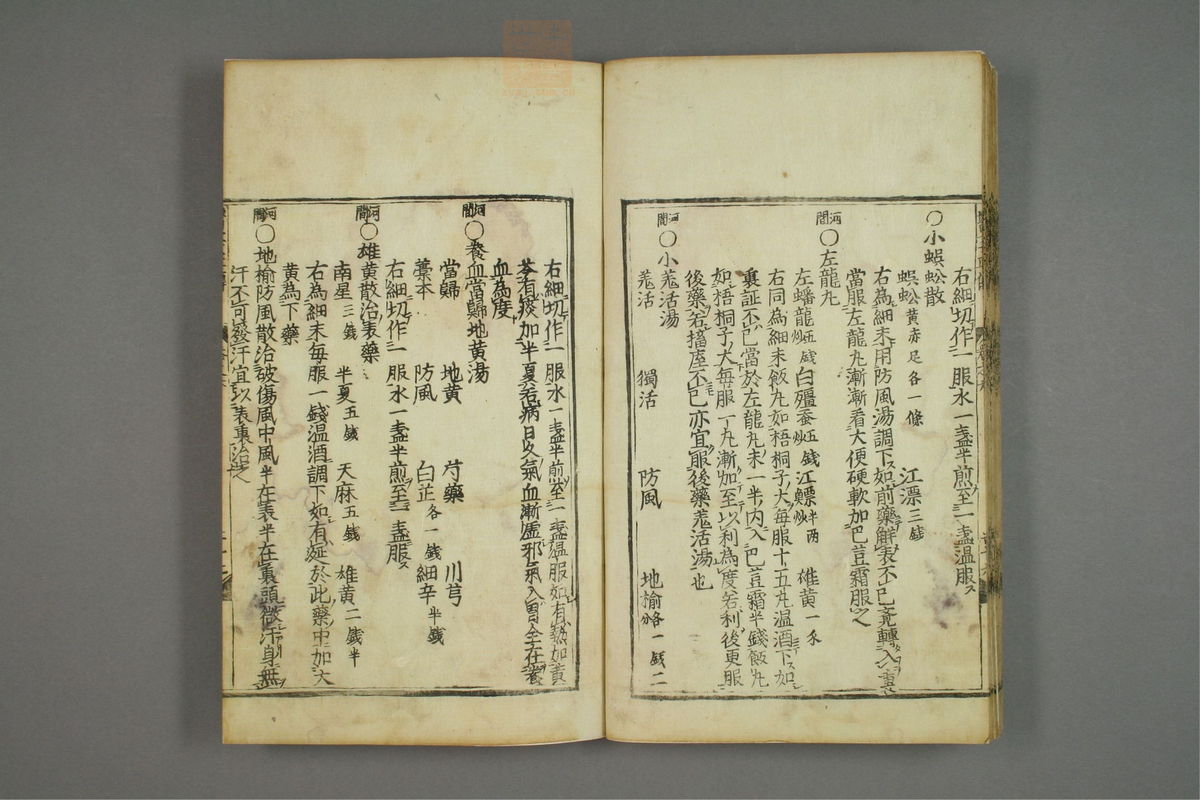 右細切作一服水一盞半煎至一盞温服
〇小蜈蚣散
蜈蚣黄赤足各一條 江漂三錢
右為細末用防風湯調下如前藥解表不已竟轉入裏
當服左龍丸漸漸看大便硬軟加巴豆霜服之
河間〇左龍丸
左蟠龍炒五錢 白殭蚕炒五錢 江鰾炒半両 雄黄一
右同為細末飯丸如梧桐子大毎服十五丸温酒下如
裏証不已當於左龍丸末一半内入巴豆霜半錢飯丸
如梧桐子大毎服一丸漸加至以利為度若利後更服
後藥若搐痓不已亦宜服後藥羗活湯也
河間〇小羗活湯
羗活 獨活 防風 地榆各一錢二分
右細切作一服水一盞半煎至一盞温服如有熱加黄
芩有痰加半夏若病日久氣血漸虚邪氣入胃全在養
血為度
河間〇養血當歸地黄湯
當歸 地黄 芍藥 川芎
藁本 防風 白芷各一錢 細辛半錢
右細切作一服水一盞半煎至一盞服
河間〇雄黄散治表藥
南星三錢 半夏五錢 天麻五錢 雄黄二錢半
右為細末毎服一錢温酒調下如有涎於此藥中加大
黄為下藥
河間〇地榆防風散治破傷風中風半在表半在裏頭微汗身無
汗不可發汗宜以表裏治之